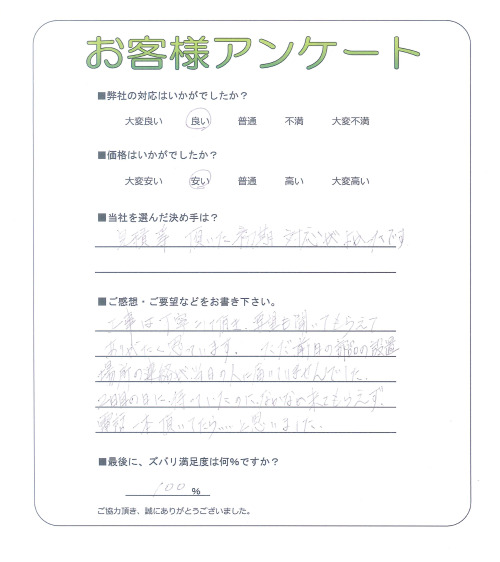 お客様アンケート
■弊社の対応はいかがでしたか？
大変良い 良い 普通 不満 大変不満
■価格はいかがでしたか？
大変安い 安い 普通 高い 大変高い
■当社を選んだ決め手は？
見積等 頂いた 対応がよかったです
■ご感想・ご要望などをお書き下さい。
工事は丁寧にして頂き、要望も聞いてもらえて
ありがたく思っています。 ただ前日の部品の設置
場所の連絡が当日の人に届いていませんでした。
2日目の日に、待っていたのに、なかなか来てもらえず、
電話一本頂いてたら……と思いました。
■最後に、ズバリ満足度は何%ですか？
100 %
ご協力頂き、誠にありがとうございました。